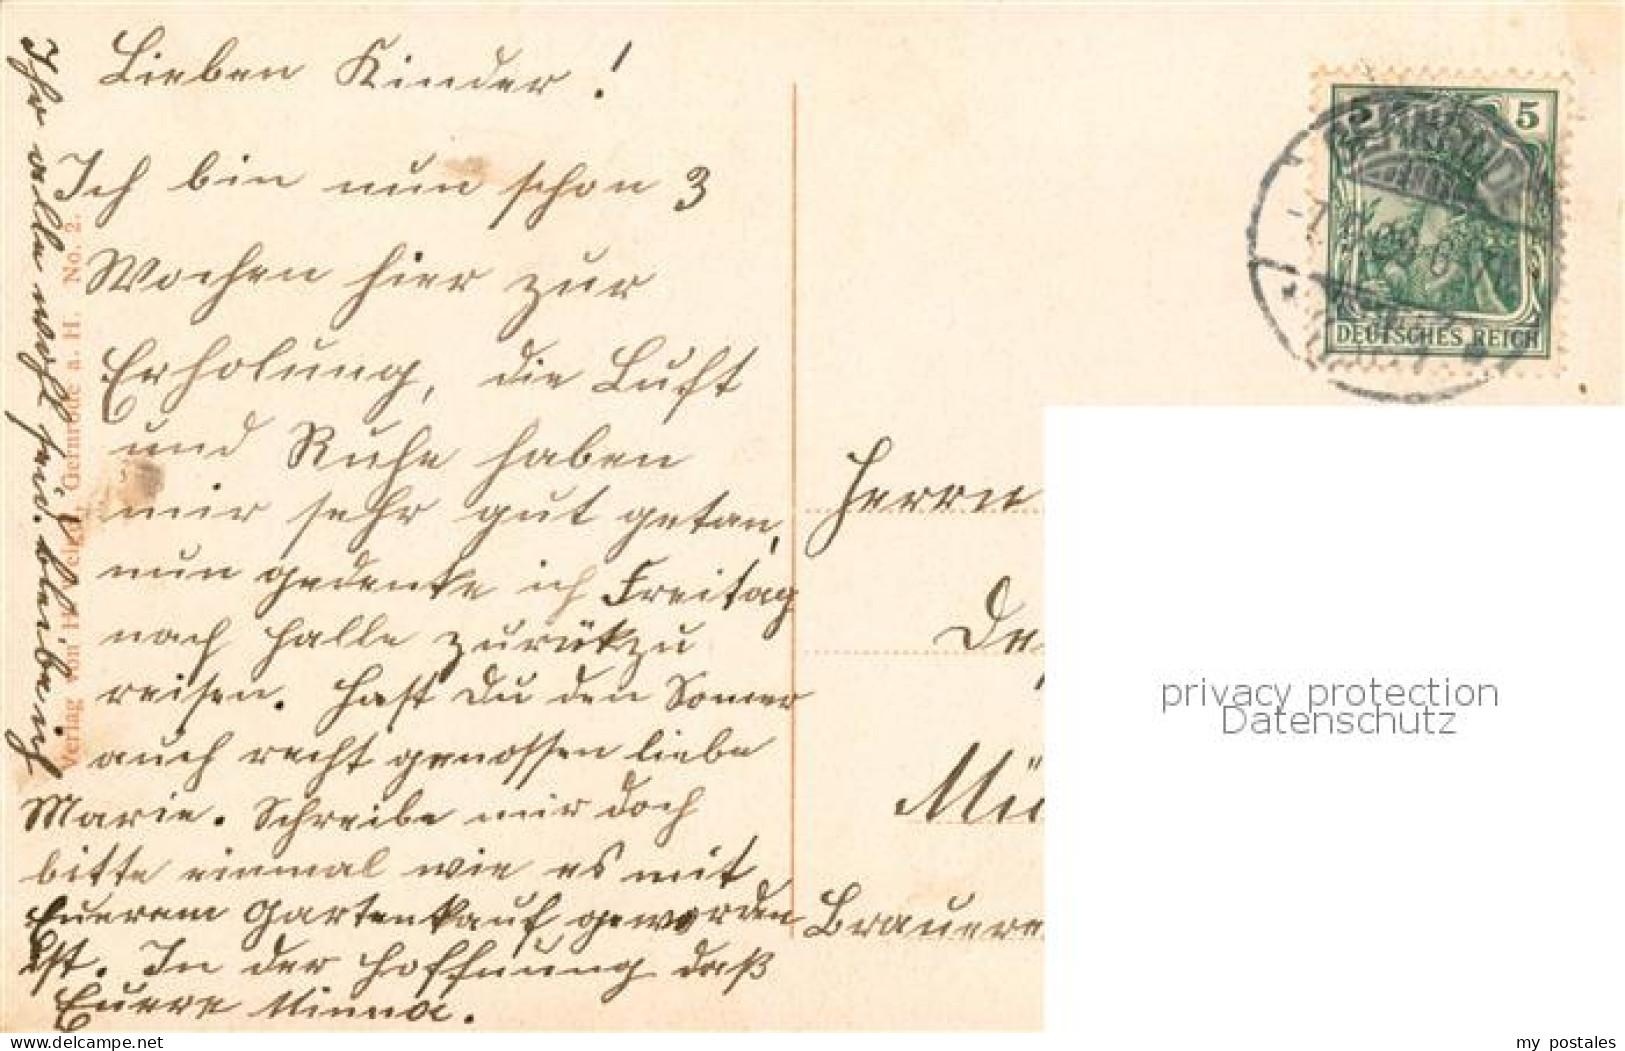 Lieben Kinder!
Ich bin nun schon 3
Wochen hier zur
Erholung, die Luft
und Ruhe haben
mir sehr gut getan,
nun gedenke ich Freitag
nach Halle zurükzu
reisen. Hast Du den Somer
auch recht genossen liebe
Marie. Schreibe mir doch
bitte einmal wie es mit
Euerem Gartenkauf geworden
ist. In der Hoffnung daß
Ihr alle wohl seid. bleibe ich
Euere Minna.
Verlag von H. Gernrode a. H. No. 2.
5 5
DEUTSCHES REICH
Herrn
Brauere
privacy protection
Datenschutz
ak-ansichtskarten.com
my_postales